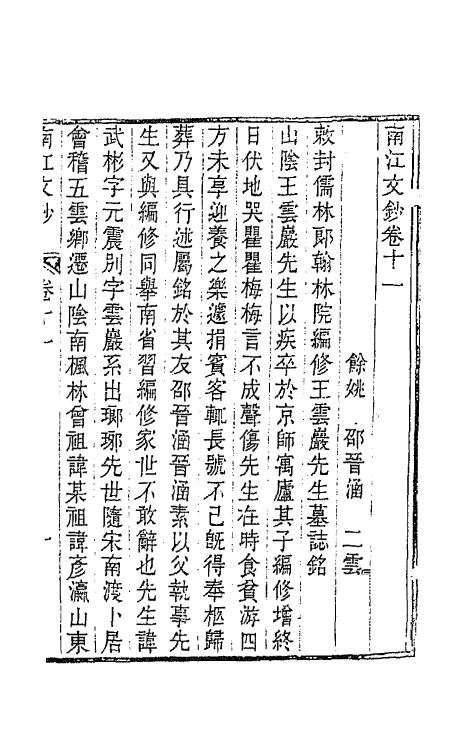 南江文鈔卷十一
餘姚 邵晉涵 二雲
敕封儒林郎翰林院編修王雲巖先生墓誌銘
山陰王雲巖先生以疾卒於京師寓廬其子編修增終
日伏地哭瞿瞿梅梅言不成聲傷先生在時食貧游四
方未享迎養之樂遽捐賓客輒長號不已旣得奉柩歸
葬乃具行述屬銘於其友邵晉涵晉涵素以父執事先
生又與編修同舉南省習編修家世不敢辭也先生諱
武彬字元震別字雲巖系出瑯琊先世隨宋南渡卜居
會稽五雲鄉遷山陰南楓林曾祖諱某祖諱彥瀛山東
南江文鈔 卷十一 一